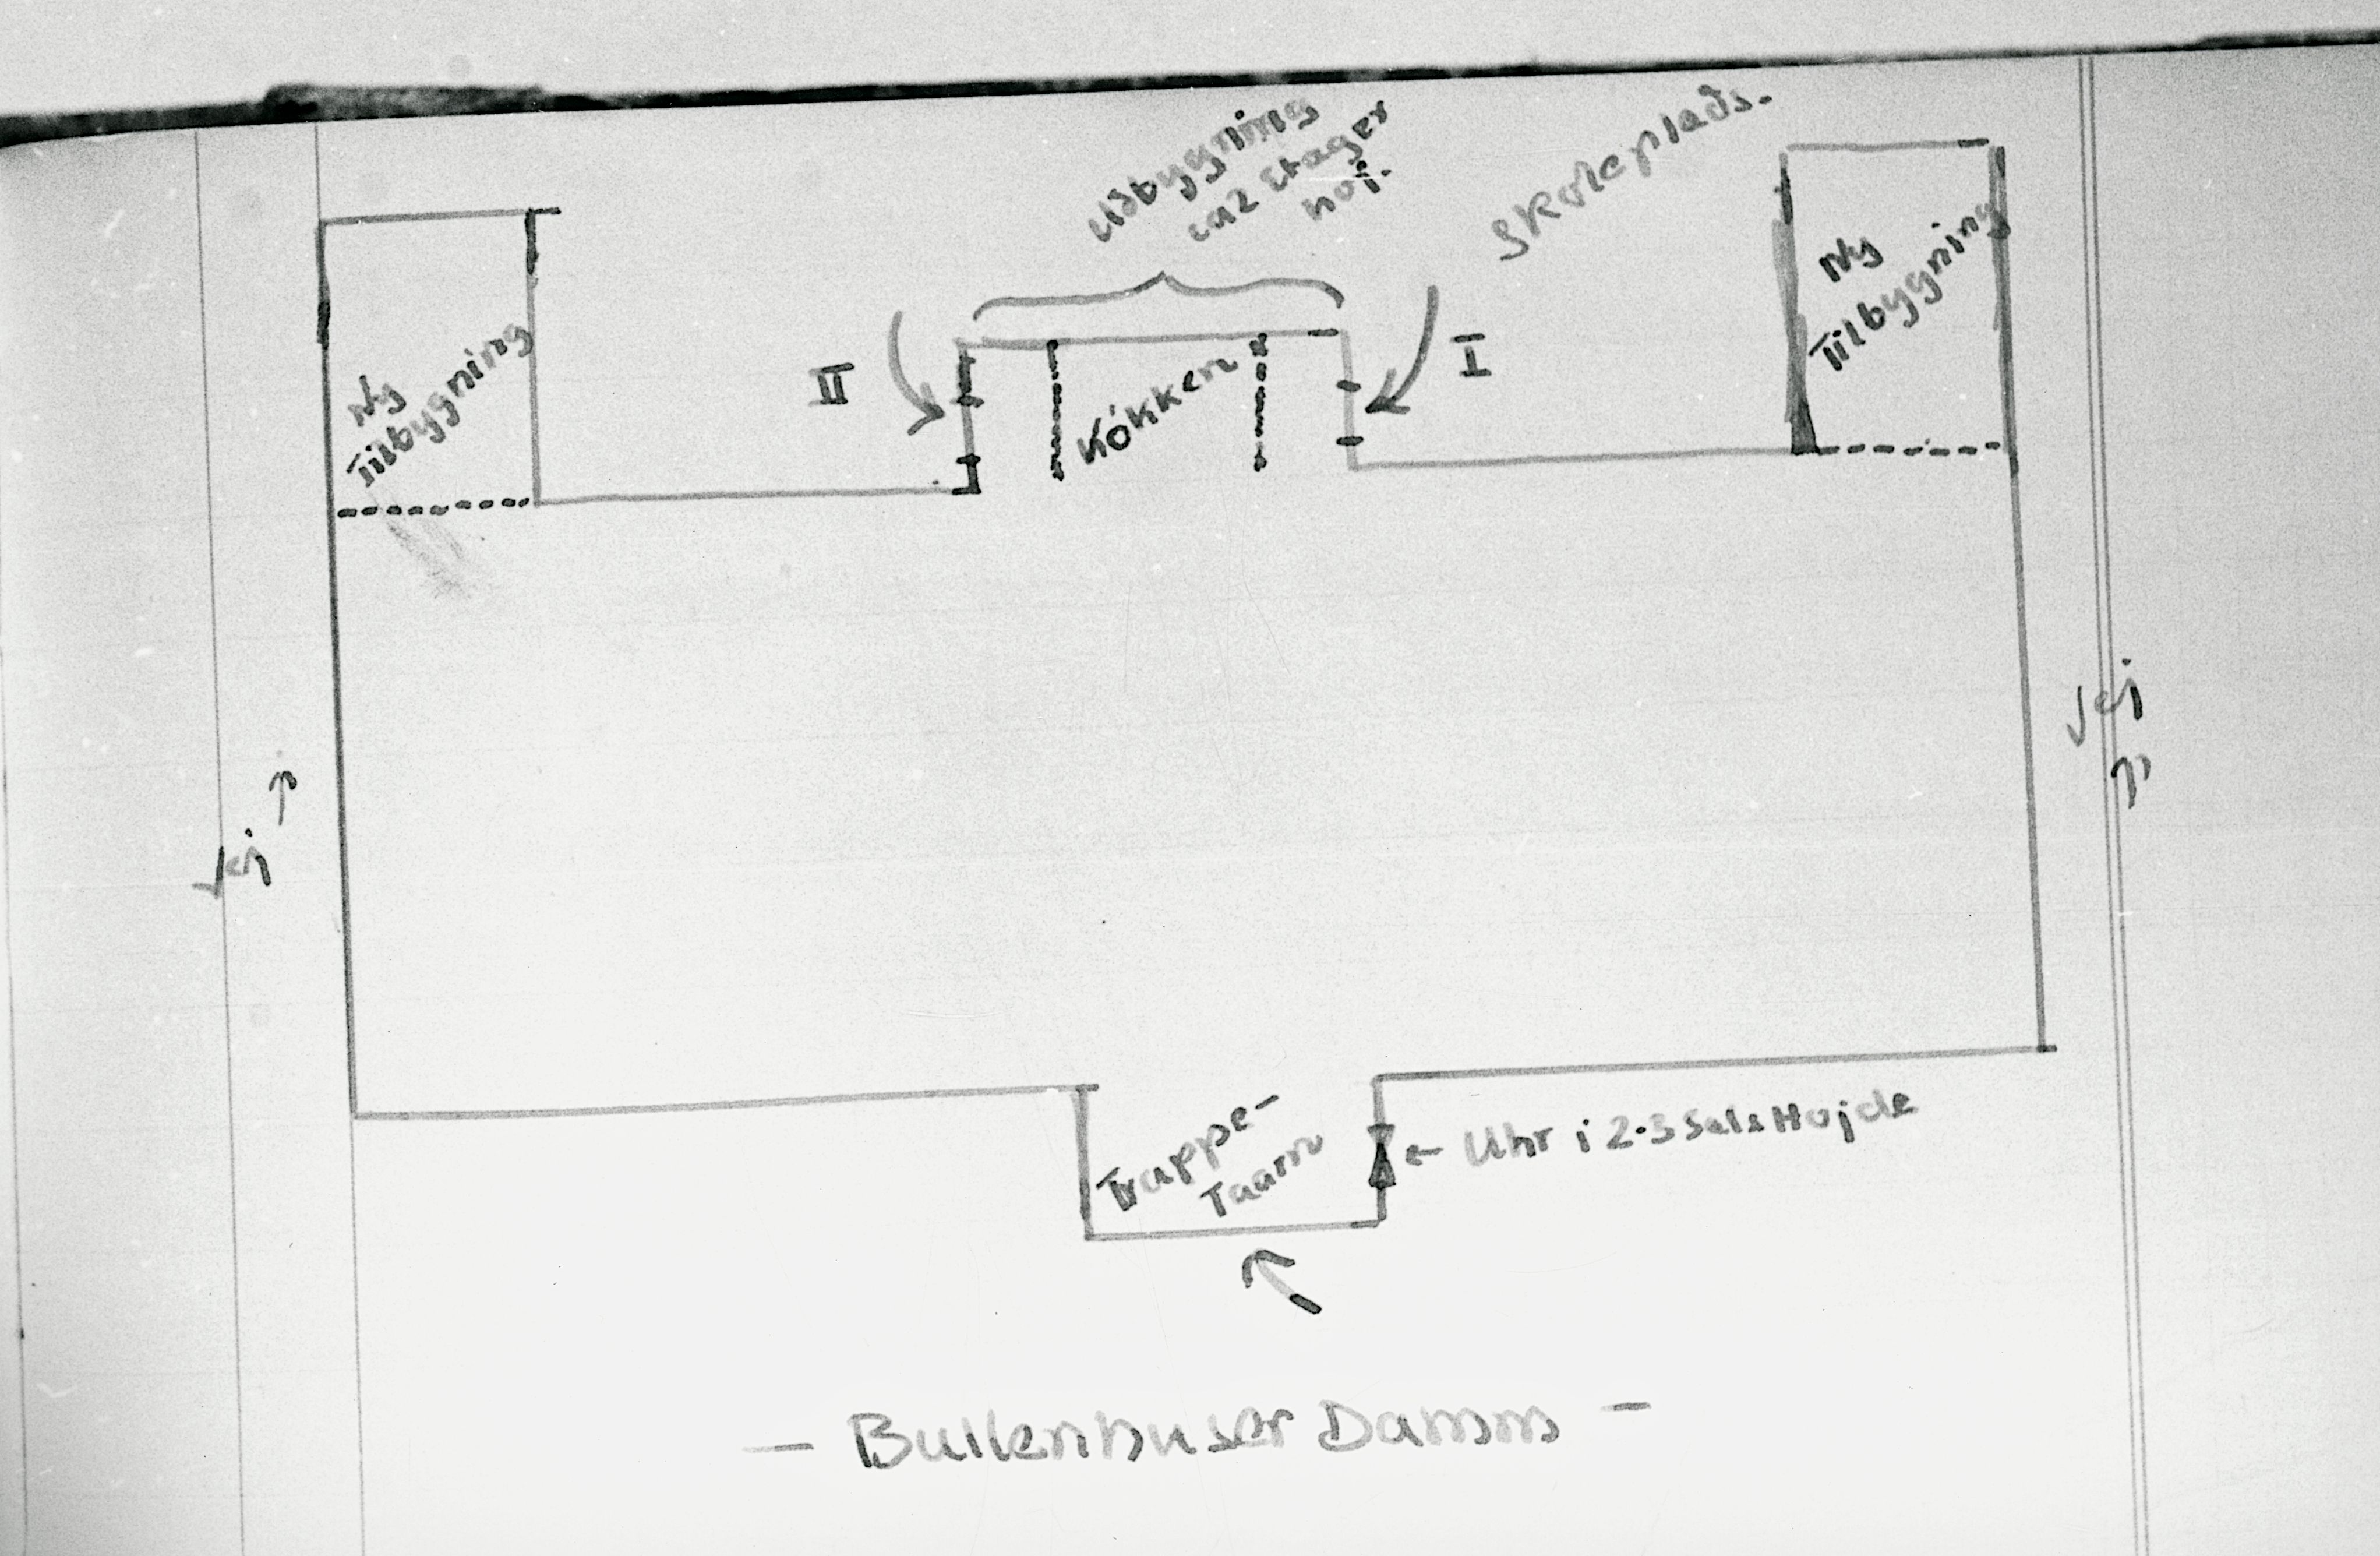 Udbygning
ca 2 Etager
høj.
Skoleplads.
Ny
Tilbygning
Ny
Tilbygning
II
Køkken
I
Vej
Vej
Trappe-
Taarn
← Uhr i 2-3 Sals Højde
- Bullenhuser Damm -